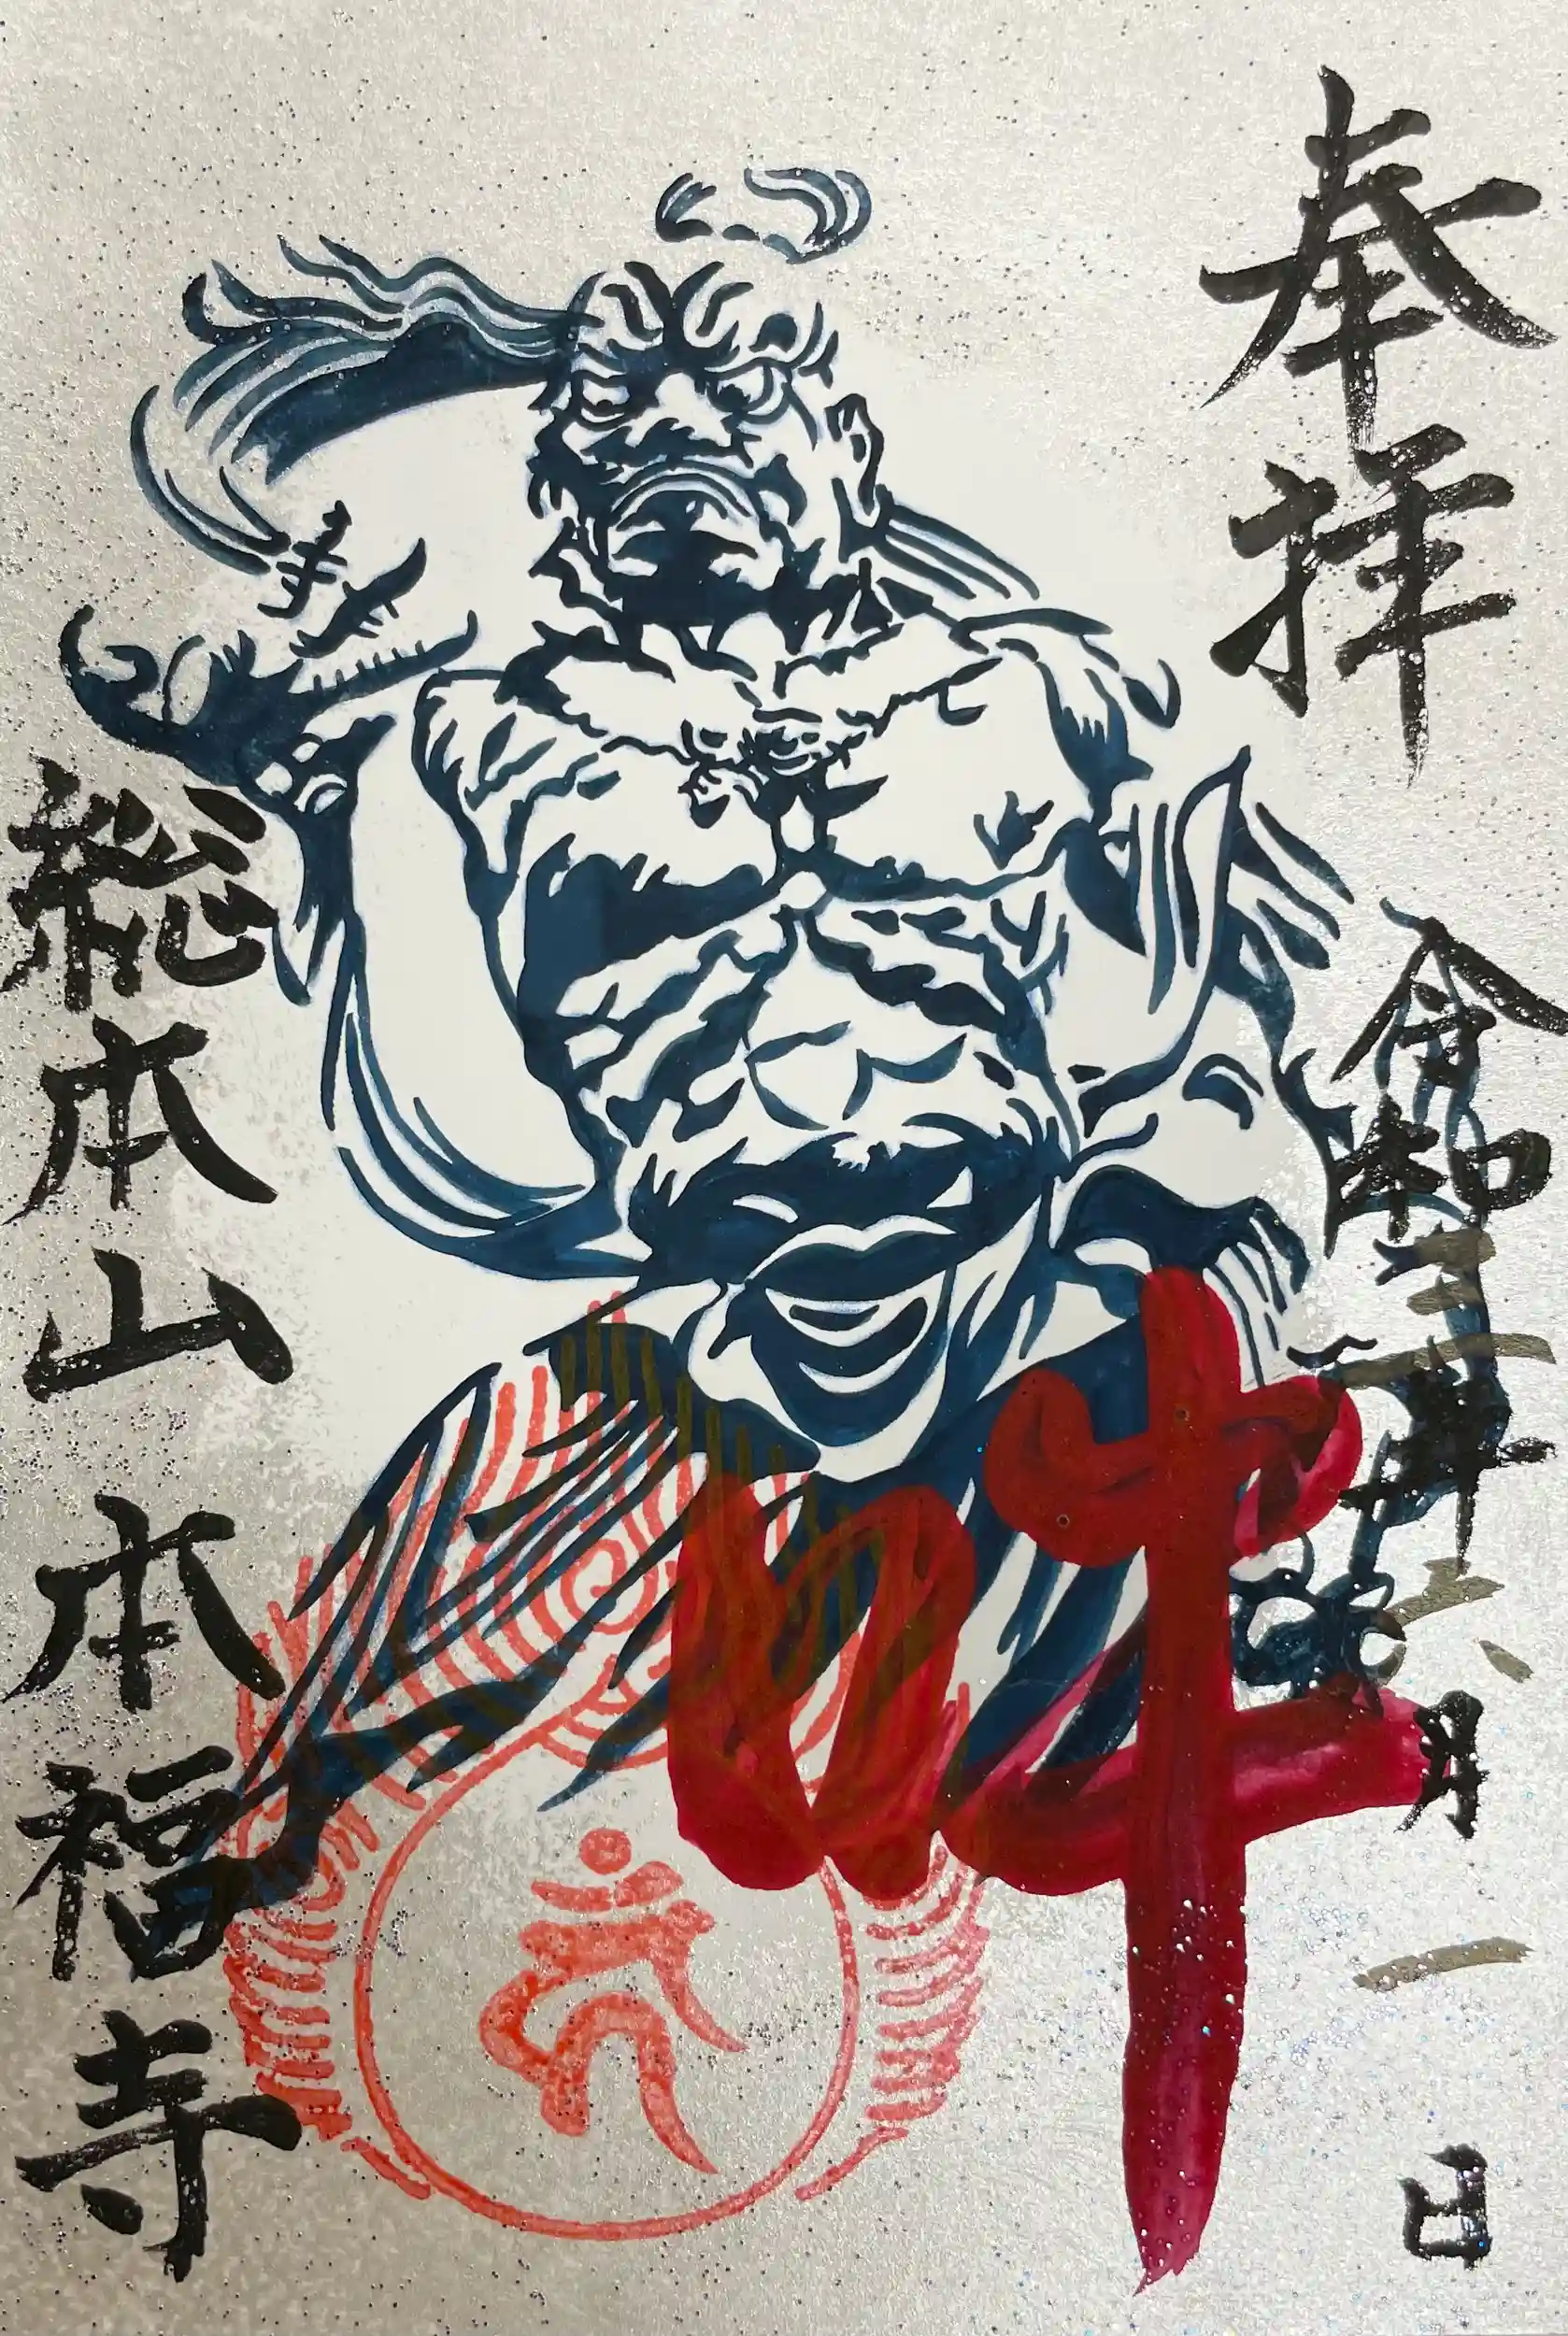 奉拝
令和三年六月一日
吽
総本山本福寺